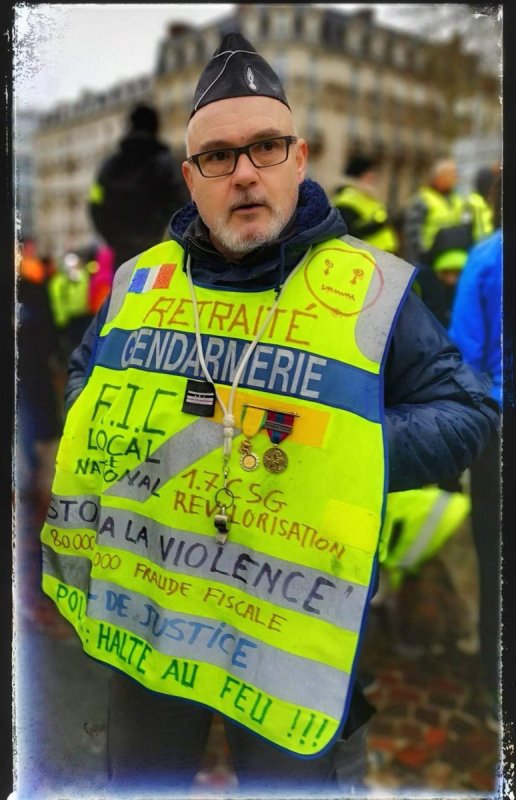 RETRAITÉ
GENDARMERIE
R.I.C
LOCAL
ET
NATIONAL
1.7 CSG
REVALORISATION
STOP A LA VIOLENCE
80 000 000 FRAUDE FISCALE
DE JUSTICE
HALTE AU FEU !!!